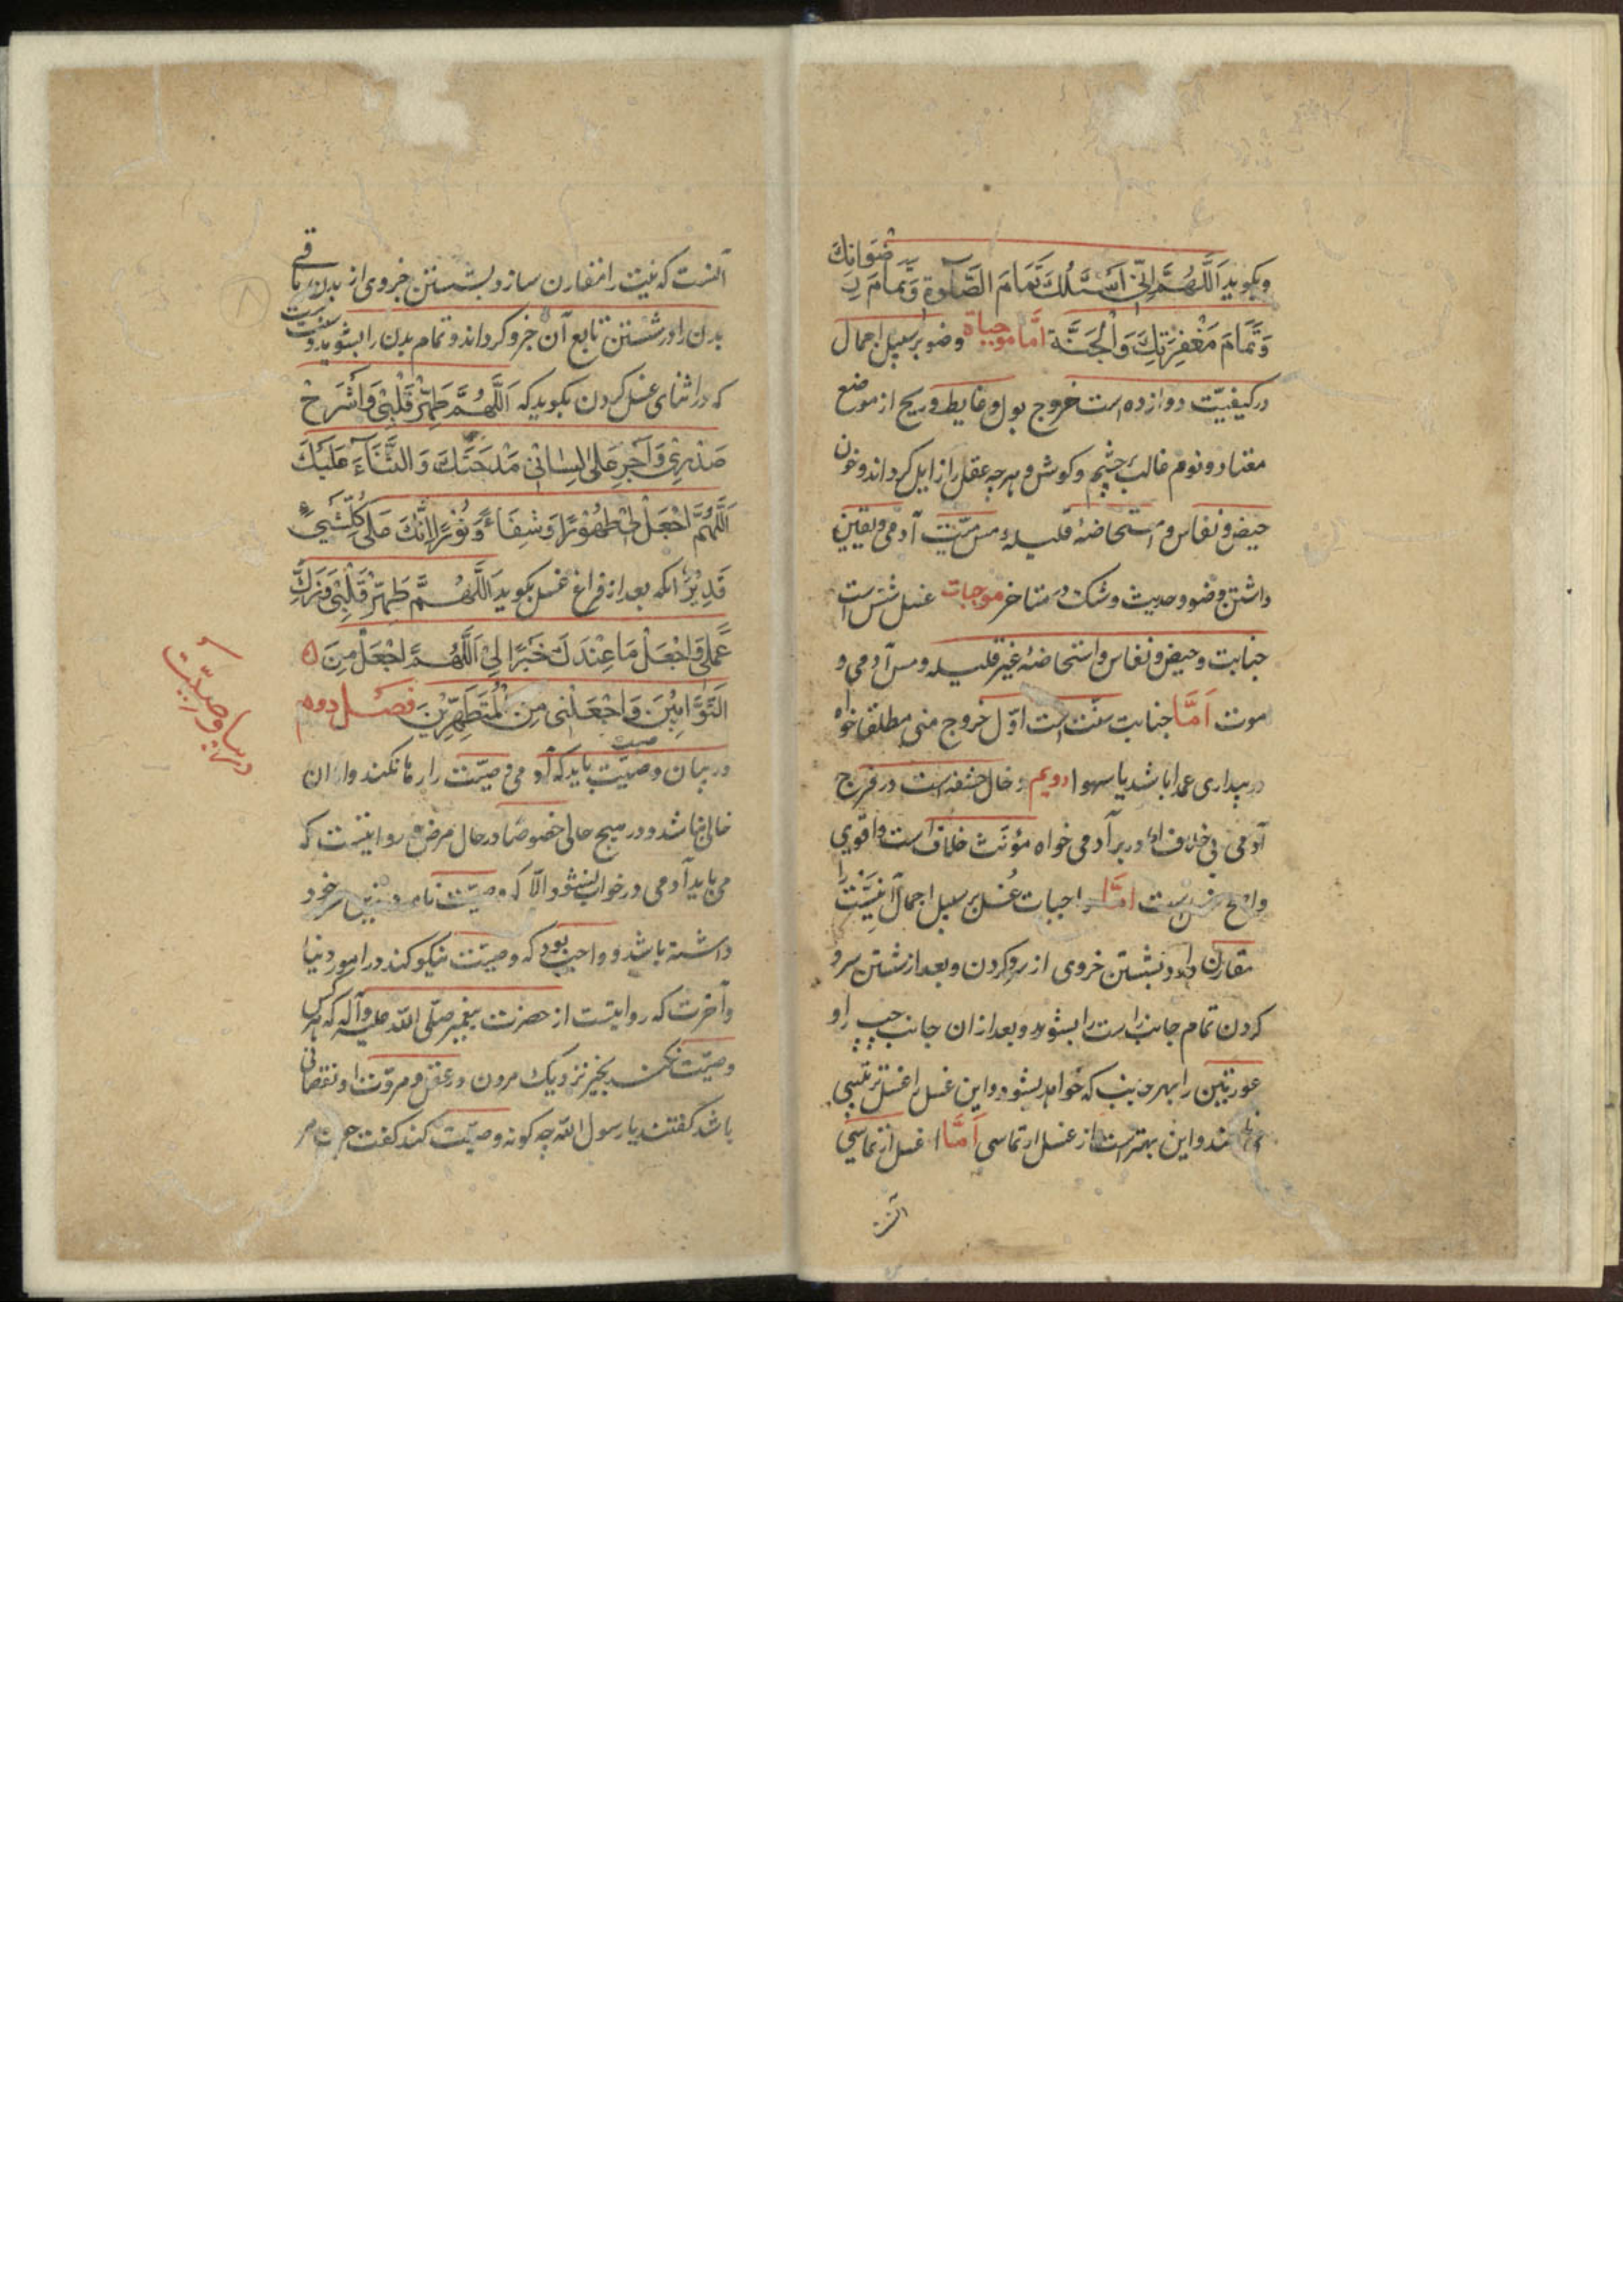 و بکوید اَللّهُمَّ اِنّی اَسْئَلُكَ تَمامَ الصَّلوةِ وَ تَمامَ رِضْوانِكَ
وَ تَمَامَ مَغْفِرَتِكَ وَ الْجَنَّة اَمّا موجباة وضو بر سبیل اجمال
در کیفیّت دوازده است خروج بول و غایط و ریح از موضع
معتاد و نوم غالب بر چشم و کوش و هر چه عقل را زایل کرداند و خون
حیض و نفاس و استحاضهٔ قلیله و مس میّت آدمی و یقین
داشتن وضو و حدیث و شک در متاخر موجبات غسل شش است
جنابت و حیض و نفاس و استحاضهٔ غیر قلیله و مس آدمی و
موت اَمَّا جنابت است اوّل خروج منی مطلقا خواه
در بیداری عمدا باشد یا سهوا دویم دخال حشفه است در فرج
آدمی بی خلاف اما در بر آدمی خواه مؤنث خلاف است و اقوی
واضح است امّا واجبات غُسل بر سبیل اجمال آنست نیّت را
مقارن دارد بشستن جزوی از سر و کردن و بعد از شستن سر و
کردن تمام جانب راست را بشوید و بعد از ان جانب چپ را و
عورتین را بهر جانب که خواهد بشود و این غسل را غسل ترتیبی
مند و این بهتر است از غسل ارتماسی اَمَّا غسل ارتماسی
آنست
آنست که نیّت را مقارن سازد بشستن جزوی از بدن و باقی
بدن را در شستن تابع آن جزو کرداند و تمام بدن را بشوید و سنت است
که در اثنای غسل کردن بکوید که اَللَّهُمَّ طَهِّرْ قَلْبِی وَ اشْرَحْ
صَدْرِی وَ اَجْرِ عَلی لِسانِی مَدْحَتَكَ وَ الثَّنَاءَ عَلَیْكَ
اَللّهُمَّ اجْعَلْ لِی طَهُوْرًا وَ شِفَاءً وَ نُوْرًا اِنَّكَ عَلی کُلِّ شَیءٍ
قَدِیْرٌ انکه بعد از فراغ غسل بکوید اَللَّهُمَّ طَهِّرْ قَلْبِی وَ زَكِّ
عَمَلِی وَ اجْعَلْ مَا عِنْدَكَ خَیْرًا لِی اَللَّهُمَّ اجْعَلْنِی مِنَ ه
التَّوَّابِیْنَ وَ اجْعَلْنِی مِنَ الْمُتَطَهِّرِیْنَ فصل دوم
در بیان وصیّت باید که آدمی وصیّت را رها نکند و از ان
خالی نباشد و در هیچ حالی خصوصًا در حال مرض و روایتست که
می باید آدمی در خواب نشود الّا که وصیّت نامه در زیر سر خود
داشته باشد و واجب بود که وصیّت نیکو کند در امور دنیا
و آخرت که روایتست از حضرت پیغمبر صلّی الله علیه و آله که هر کس
وصیّت نکند بخیر نزدیک مردن در عقل و مروّت او نقصانی
باشد کفتند یا رسول الله چه کونه وصیّت کند کفت چون مر
در بیان وصیّت
۸